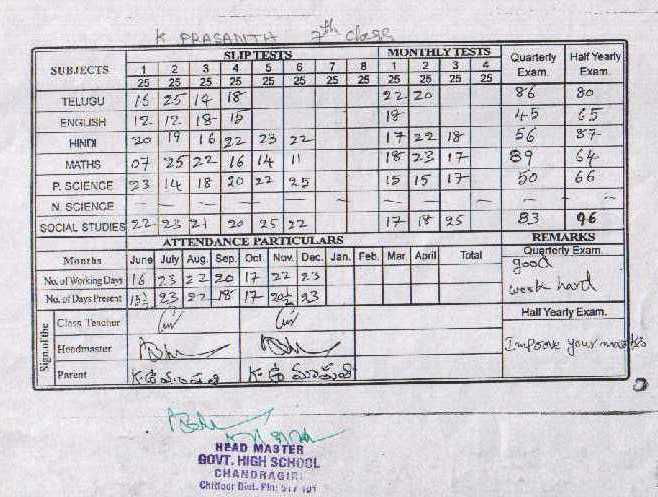 K PRASANTH 7th Class
SUBJECTS SLIP TESTS MONTHLY TESTS Quarterly Exam. Half Yearly Exam.
1 2 3 4 5 6 7 8 1 2 3 4
25 25 25 25 25 25 25 25 25 25 25 25
TELUGU 15 25 14 18 22 20 86 80
ENGLISH 12 12 18 15 18 45 65
HINDI 20 19 16 22 23 22 17 22 18 56 87
MATHS 07 25 22 16 14 11 18 23 17 89 64
P. SCIENCE 23 14 18 20 22 25 15 15 17 50 66
N. SCIENCE — — — — — — — — — — —
SOCIAL STUDIES 22 23 21 20 25 22 17 18 25 83 96
ATTENDANCE PARTICULARS REMARKS
Months June July Aug. Sep. Oct. Nov. Dec. Jan. Feb. Mar. April Total Quarterly Exam.
No. of Working Days 16 23 22 20 17 22 23 good
No. of Days Present 23 22 18 17 23 work hard
Sign. of the
Class Teacher Half Yearly Exam.
Headmaster Improve your
Parent
HEAD MASTER
GOVT. HIGH SCHOOL
CHANDRAGIRI
Chittoor Dist. Pin: 517 101